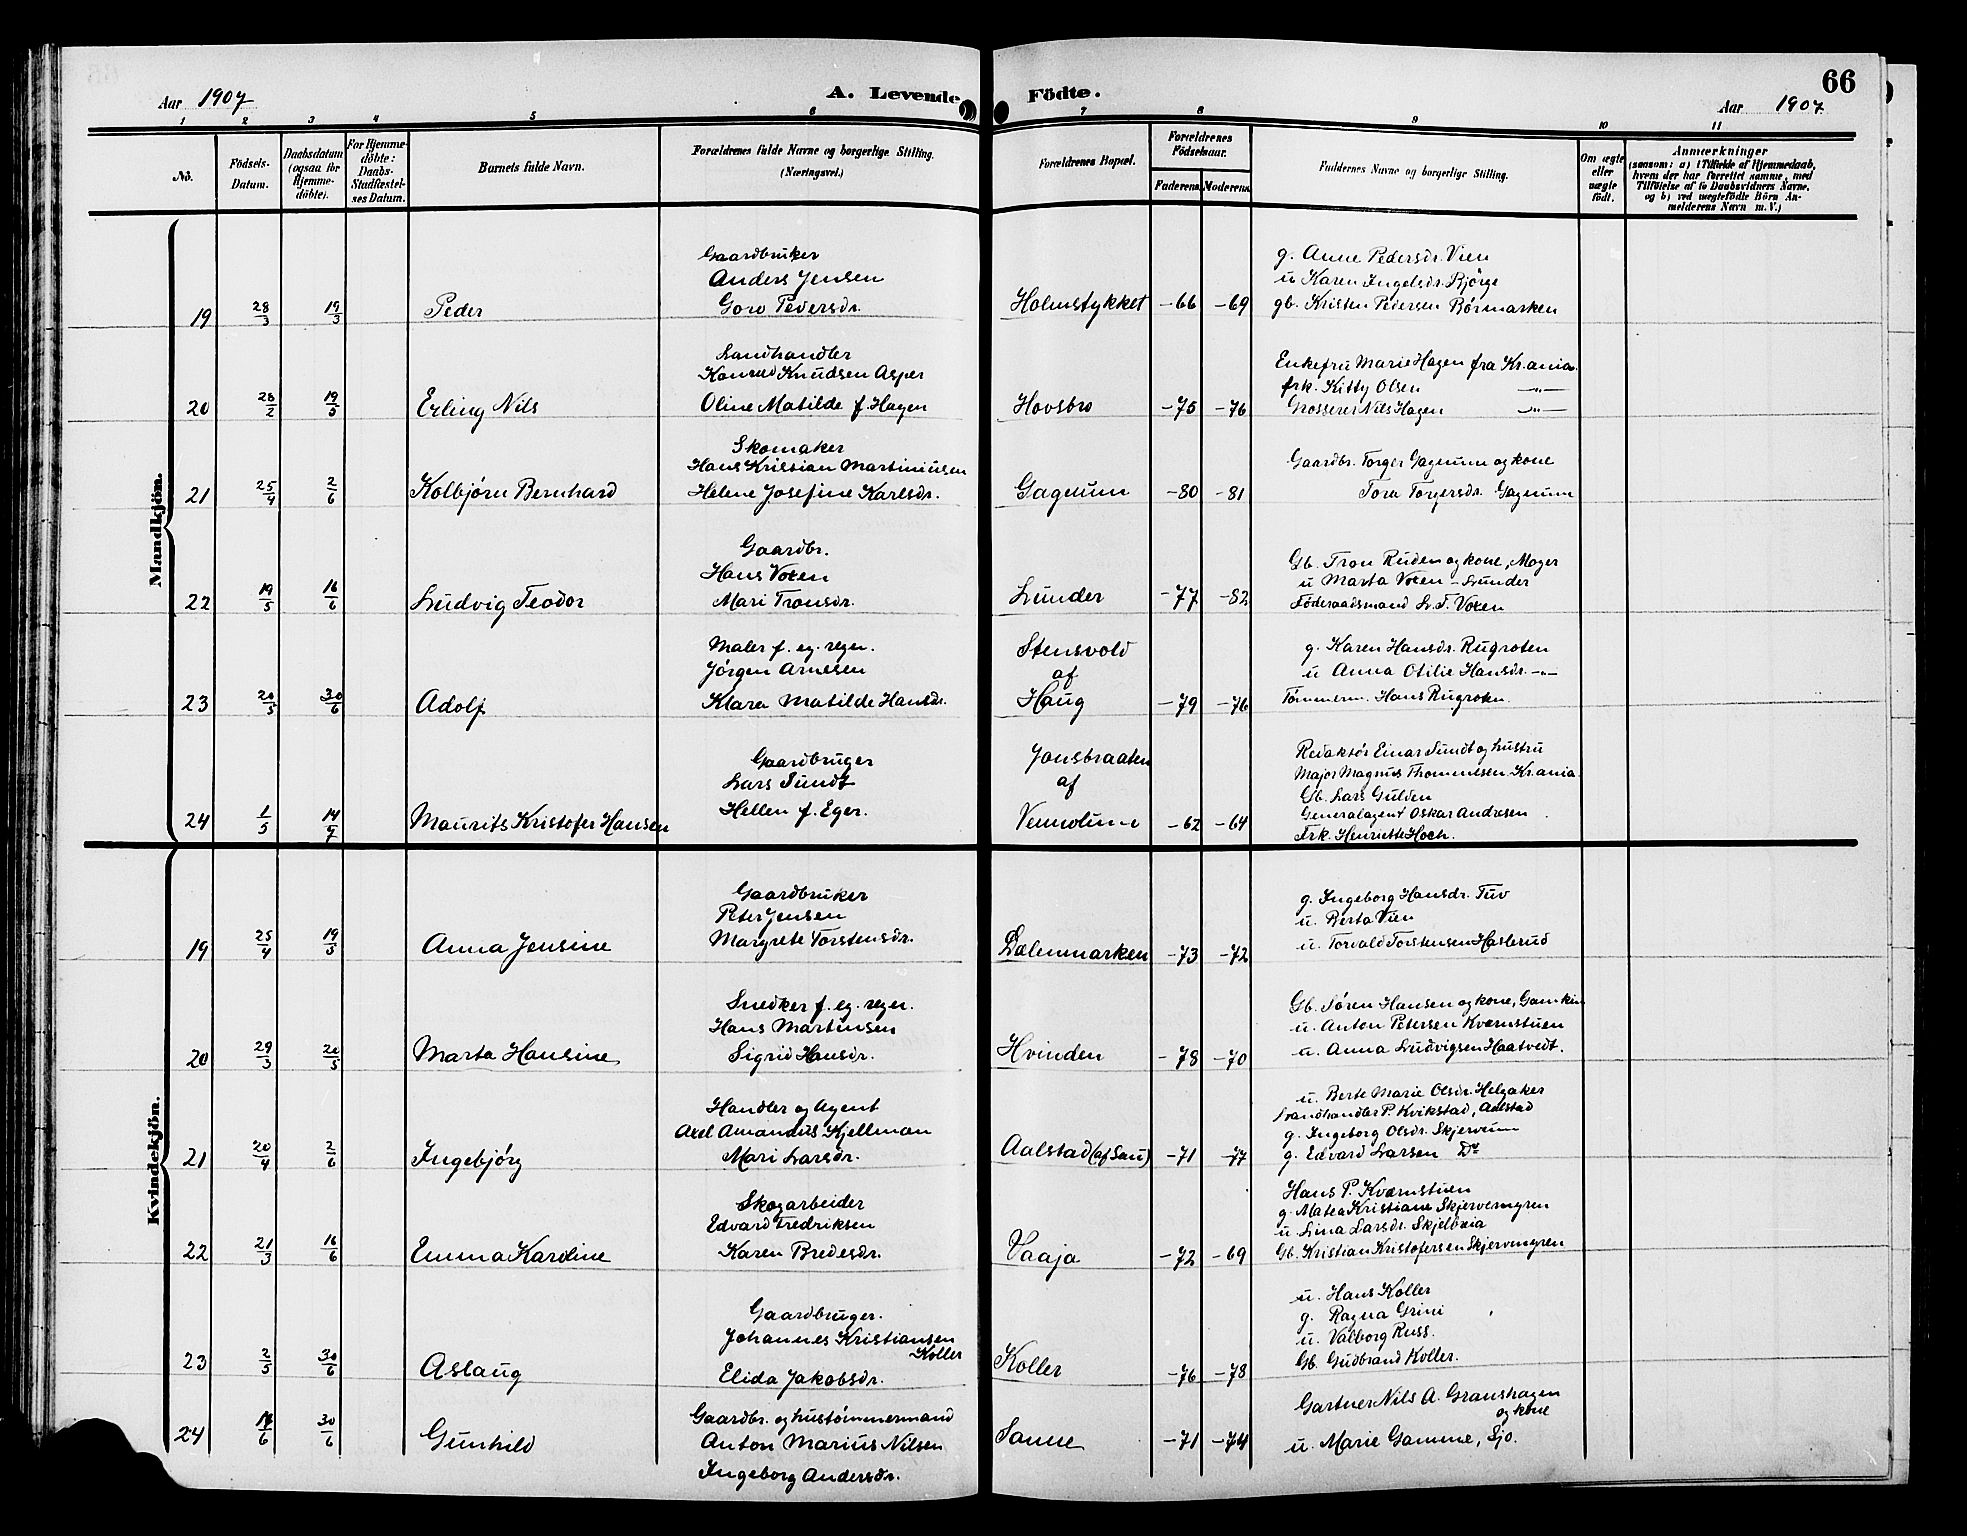 Aar 1907
A. Levende
Födte.
66
Aar 1907.
1 2 3 4 5 6 7 8 9 10 11
No.
Födsels-
Datum.
Daabsdatum
(ogsaa for
Hjemme-
döbte).
For Hjemme-
döbte:
Daabs-
Stadfæstel-
ses Datum.
Barnets fulde Navn.
Forældrenes fulde Navne og borgerlige Stilling.
(Næringsvei.)
Forældrenes Bopæl.
Forældrenes
Födselsaar.
Faderens. Moderens.
Faddernes Navne og borgerlige Stilling.
Om ægte
eller
uægte
födt.
Anmærkninger
(saasom: a) i Tilfælde af Hjemmedaab,
hvem der har forrettet samme, med
Tilföielse af to Daabsvidners Navne,
og b) ved uægtefödte Börn An-
melderens Navn m. V.)
Mandkjön.
Gaardbruker
Anders Jensen
19 28/3 19/3 Peder Goro Pedersdr. Holmstykket -66 -69
g. Anne Pedersdr. Vien
u Karen Ingelsdr. Björge
gb. Kristen Pedersen Börmarken
Landhandler
Konrad Knudsen Asper
20 28/2 19/5 Erling Nils Oline Matilde f. Hagen Hovsbro -75 -76
Enkefru Marie Hagen fra Kr.ania.
frk. Kitty Olsen —"—
Grosserer Nils Hagen —"—
Skomaker
Hans Kristian Martiniusen
21 25/4 2/6 Kolbjørn Bernhard Helene Josefine Karlsdr. Gagnum -80 -81
Gaardbr. Torger Gagnum og kone
Tora Torgersdr. Gagnum
Gaardbr.
Hans Voxen
22 19/5 16/6 Ludvig Teodor Mari Tronsdr. Lunder -77 -82
Gb. Tron Ruden og kone, Moger
u Marta Voxen - Lunder
Föderaadsmand L. T. Voxen
Maler f. eg. regn.
Jørgen Arnesen
23 20/5 30/6 Adolf Klara Matilde Hansdr.
Stensvold
af
Haug -79 -76
g. Karen Hansdr. Rugroten
u Anna Otilie Hansdr. -"-
Tømmerm. Hans Rugroten.
Gaardbruger
Lars Sundt
24 1/5 14/7 Maurits Kristofer Hansen Hellen f. Eger.
Jonsbraaten
af
Vennolum -62 -64
Redaktör Einar Sundt og hustru
Major Magnus Thommesen Kr.ania.
Gb. Lars Gulden
Generalagent Oskar Andresen
Frk. Henriette Hoch.
Kvindekjön.
Gaardbruker
Peter Jensen
19 25/4 19/5 Anna Jensine Margrete Torstensdr. Dælenmarken -73 -72
g. Ingeborg Hansdr. Tuv
u. Berta Vien
u. Torvald Torstensen Haslerud
Snedker f. eg. regn.
Hans Martinsen
20 29/3 20/5 Marta Hansine Sigrid Hansdr. Hvinden -78 -70
Gb. Sören Hansen og kone,
u. Anton Petersen Kværnstuen
u. Anna Ludvigsen Haatvedt.
Handler og Agent
Axel Amandus Kjellman
21 20/4 2/6 Ingebjörg Mari Larsdr. Aalstad (af Sau) -71 -77
u. Berte Marie Olsdr. Helgaker
Landhandler P. Kvikstad, Aalstad
g. Ingeborg Olsdr. Skjerveum
g. Edvard Larsen Do
Skogarbeider
Edvard Fredriksen
22 21/3 16/6 Emma Karoline Karen Bredesdr. Vaaja -72 -69
Hans P. Kværnstuen
g. Matea Kristiane Skjervemgren
u. Lina Larsdr. Skjelbæia
Gb. Kristian Kristofersen Skjervemgren
Gaardbruger.
Johannes Kristiansen
Koller
23 2/5 30/6 Aslaug Elida Jakobsdr. Koller -76 -78
u. Hans Koller
g. Ragna Grini
u. Valborg Russ.
Gb. Gudbrand Koller.
Gaardbr. og hustømmermand
Anton Marius Nilsen
24 14/6 30/6 Gunhild Ingeborg Andersdr. Sanne -71 -74
Gartner Nils A. Granshagen
og kone
u. Marie Gamme, Sjo.